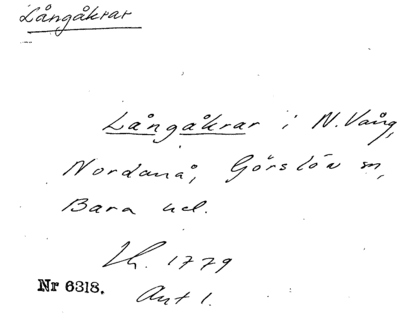 Långåkrar
Långåkrar i N. Vång,
Nordanå, Görslöv sn,
Bara hd.
Lh. 1779
Nr 6318.
Akt 1.